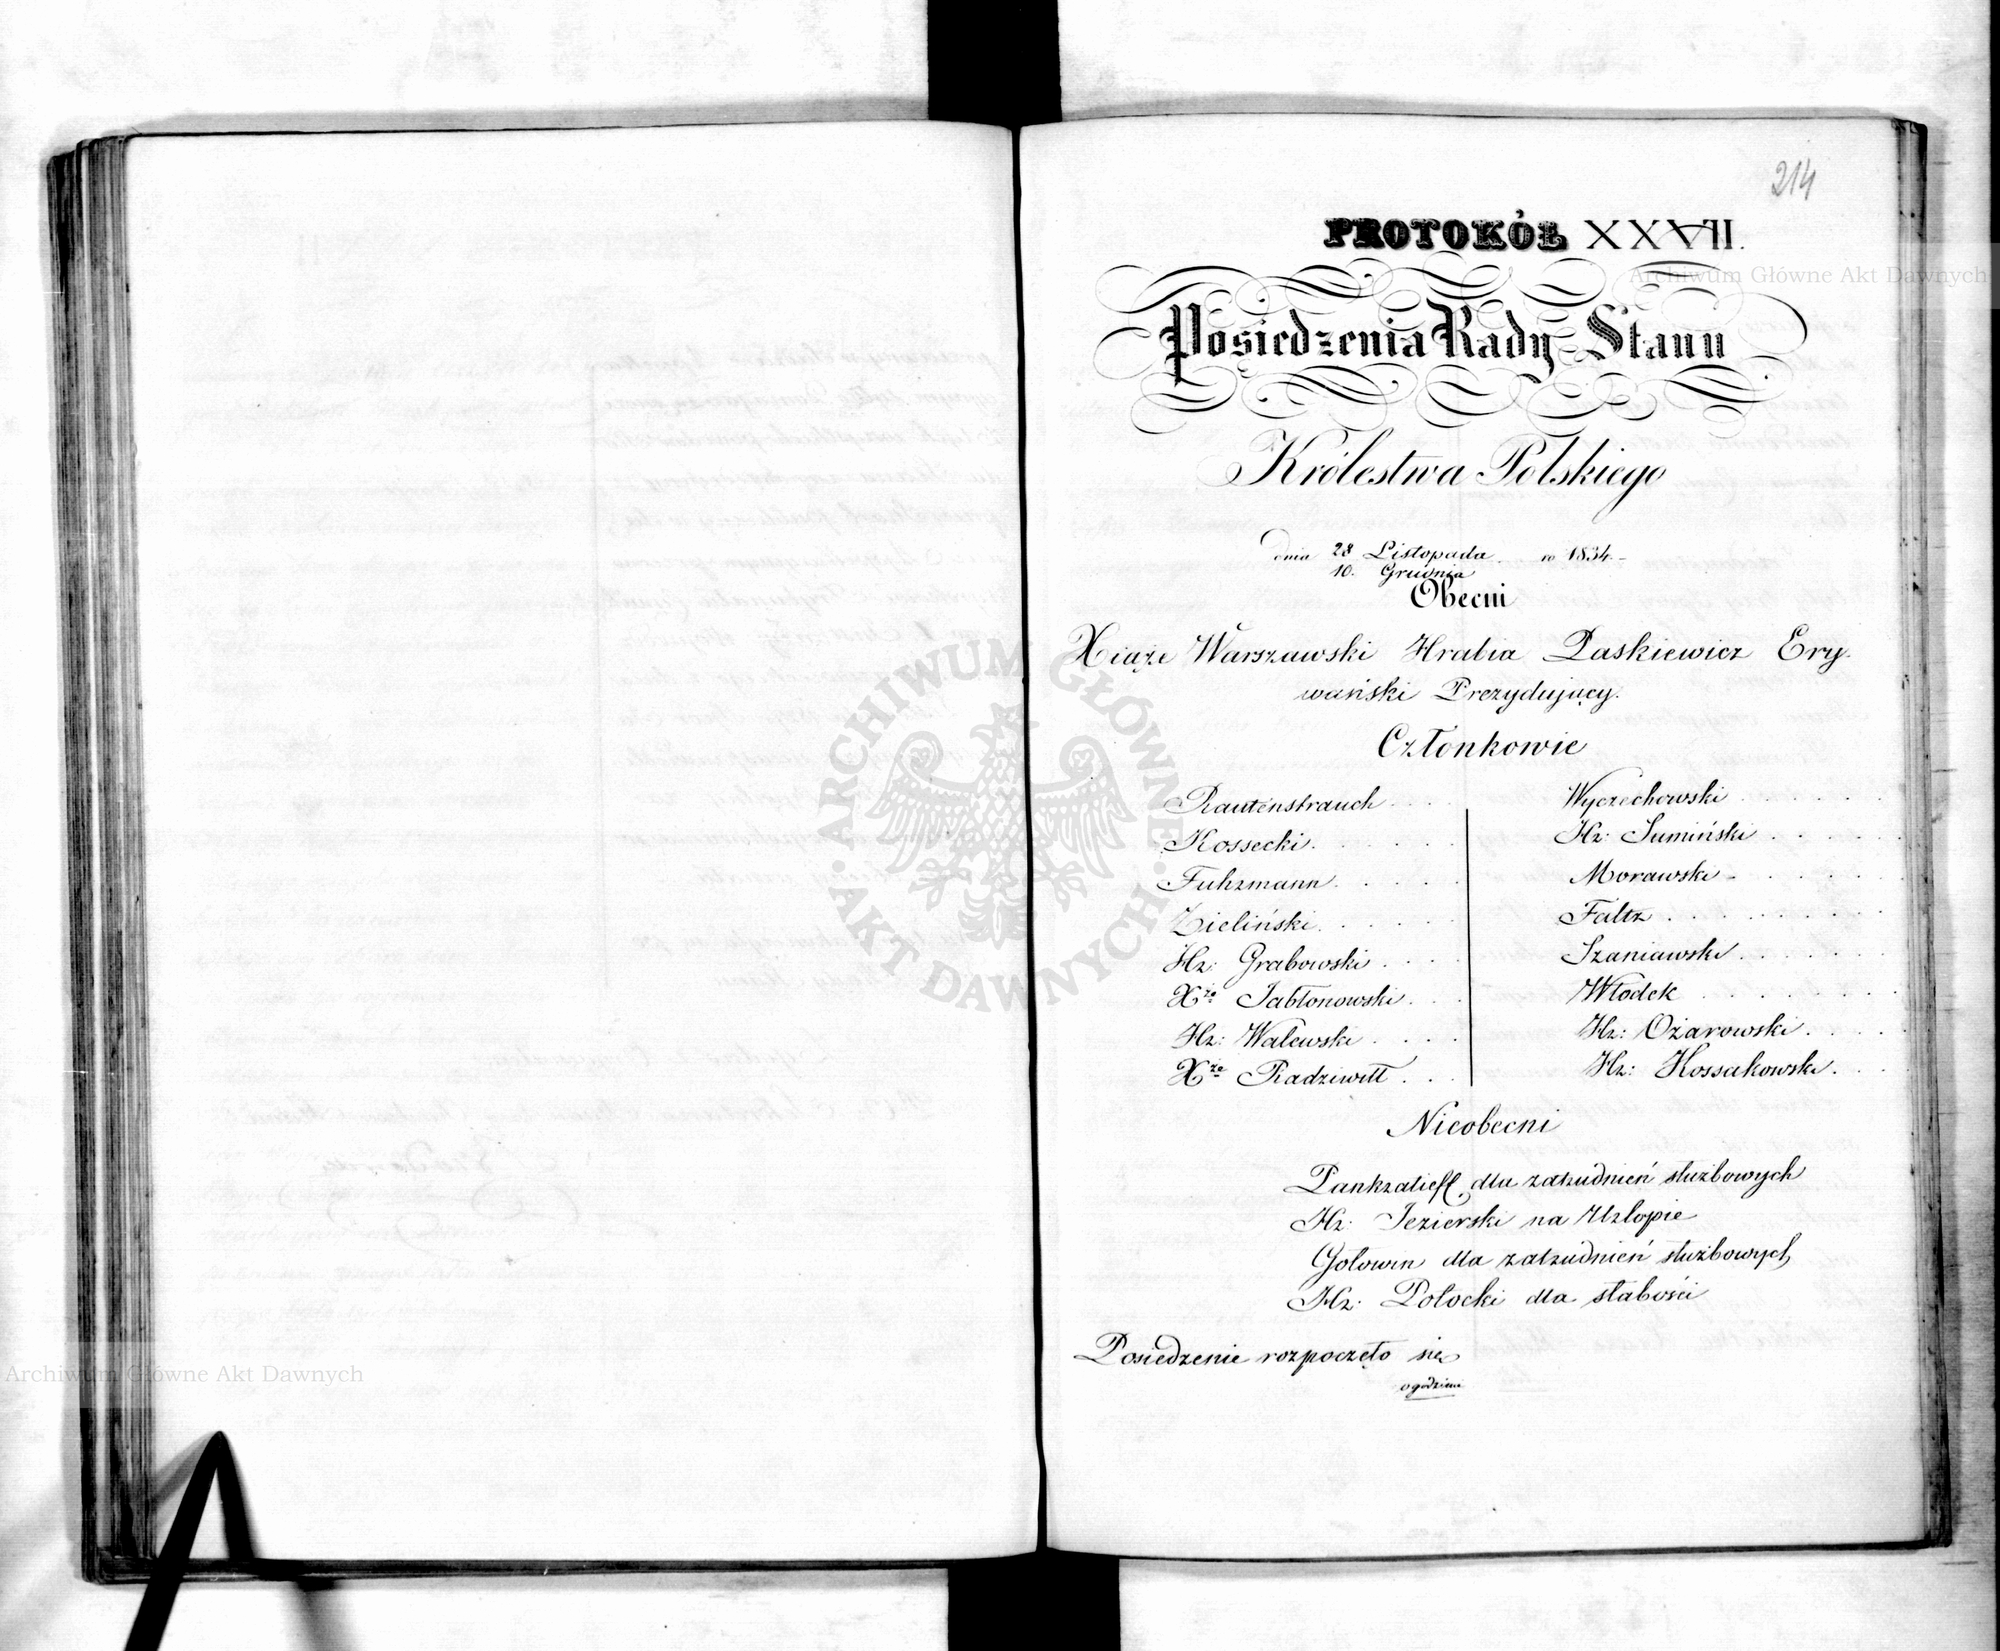 214
PROTOKÓŁ XXXVII.
Posiedzenia Rady Stanu
Królestwa Polskiego
dnia 28 Listopada w 1834.
10. Grudnia
Obecni
Xiąże Warszawski Hrabia Paskiewicz Ery-
wański Prezydujący.
Członkowie
Rautenstrauch
Kossecki
Fuhrmann
Zieliński
Hr: Grabowski
Xże Jabłonowski
Hr: Walewski
Xże Radziwiłł
Wyczechowski
Hr: Sumiński
Morawski
Faltz
Szaniawski
Włodek
Hr: Ożarowski
Hr: Kossakowski
Nieobecni
Pankratieff, dla zatrudnień służbowych
Hr: Jezierski na Urlopie
Gołowin dla zatrudnień służbowych
Hr: Potocki dla słabości
Posiedzenie rozpoczęło się
o godzinie
Archiwum Główne Akt Dawnych
ARCHIWUM GŁÓWNE AKT DAWNYCH
Archiwum Główne Akt Dawnych